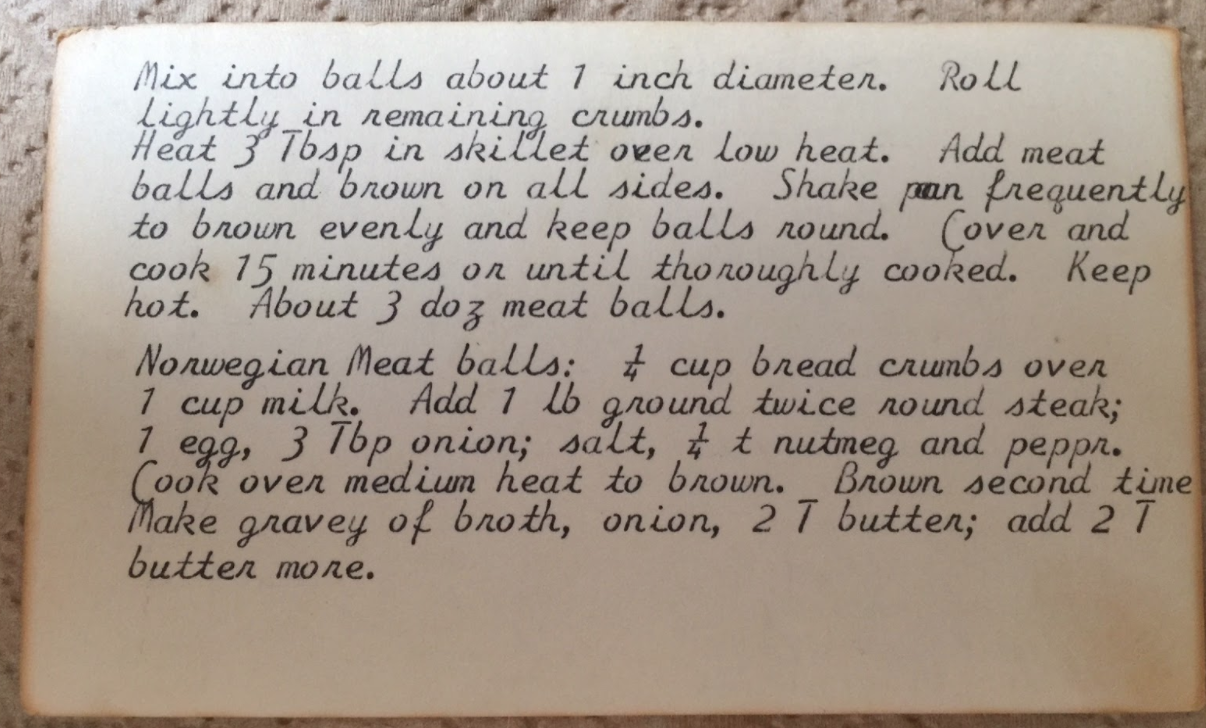 Mix into balls about 1 inch diameter. Roll
lightly in remaining crumbs.
Heat 3 Tbsp in skillet over low heat. Add meat
balls and brown on all sides. Shake pan frequently
to brown evenly and keep balls round. Cover and
cook 15 minutes or until thoroughly cooked. Keep
hot. About 3 doz meat balls.
Norwegian Meat balls: ¼ cup bread crumbs over
1 cup milk. Add 1 lb ground twice round steak;
1 egg, 3 Tbp onion; salt, ¼ t nutmeg and peppr.
Cook over medium heat to brown. Brown second time
Make gravey of broth, onion, 2 T butter; add 2 T
butter more.